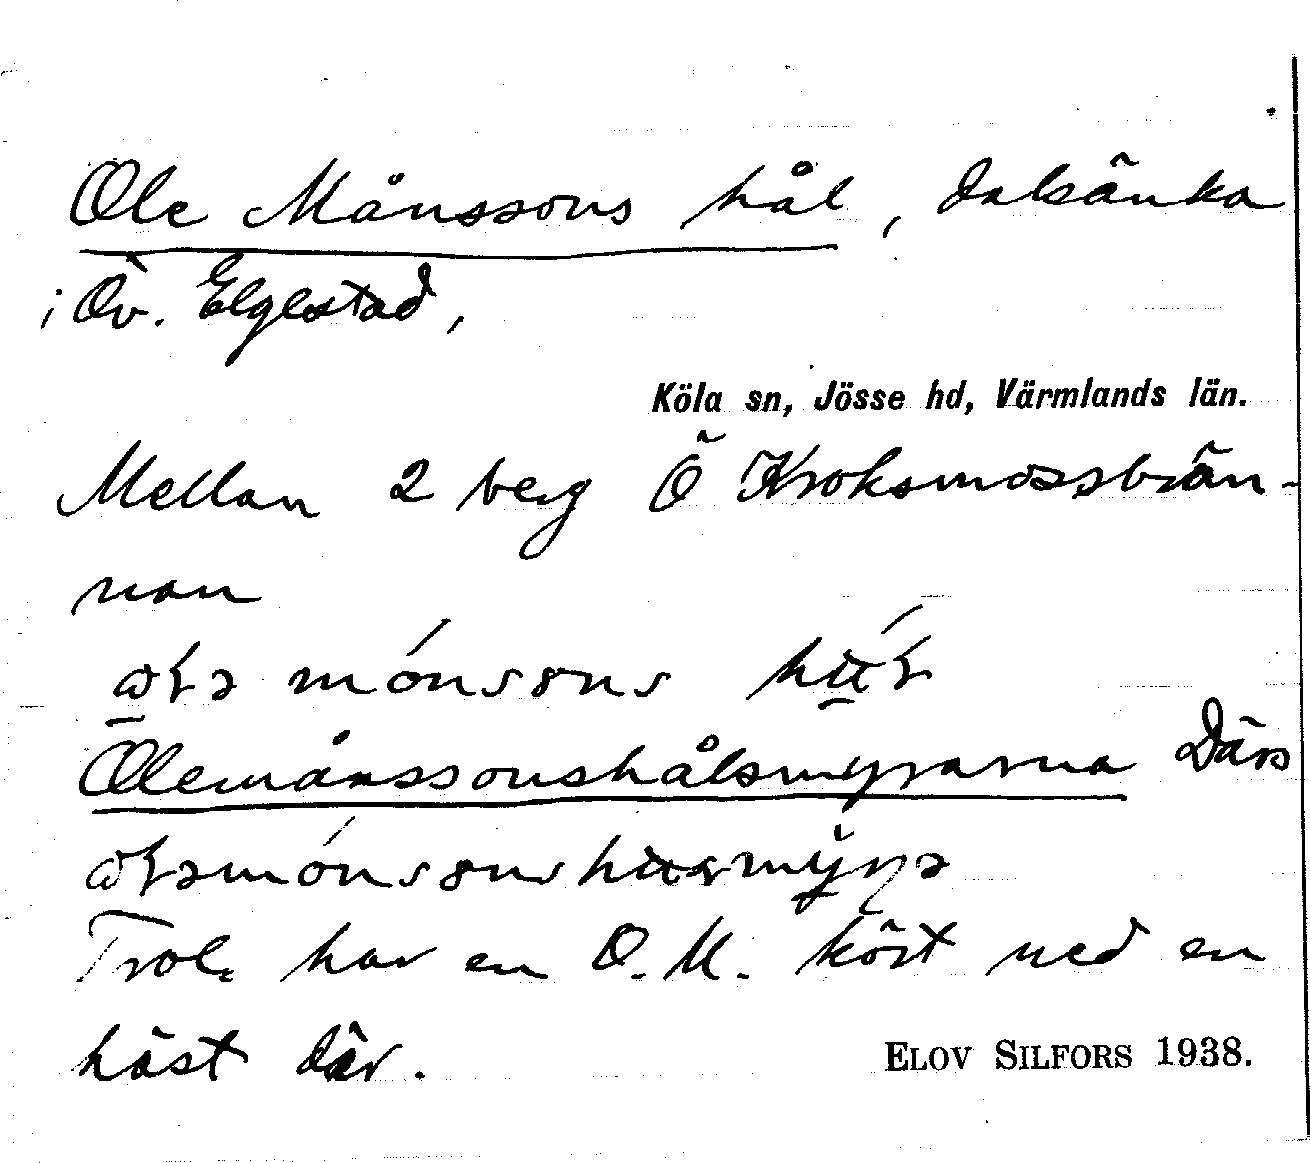 Ole Månssons hål, dalsänka
i Öv. Elgestad,
Köla sn, Jösse hd, Värmlands län.
Mellan 2 berg Ö Kroksmossbrän-
nan
mónsons
Olemånssonshålsmyrarna Därs
Trol. har en O. M. kört ned en
häst där.
ELOV SILFORS 1938.